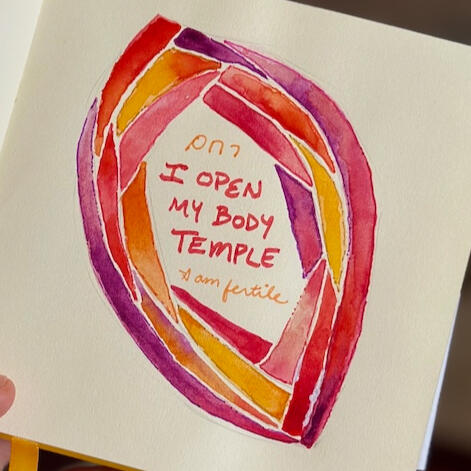 רחם
I OPEN
MY BODY
TEMPLE
I am fertile